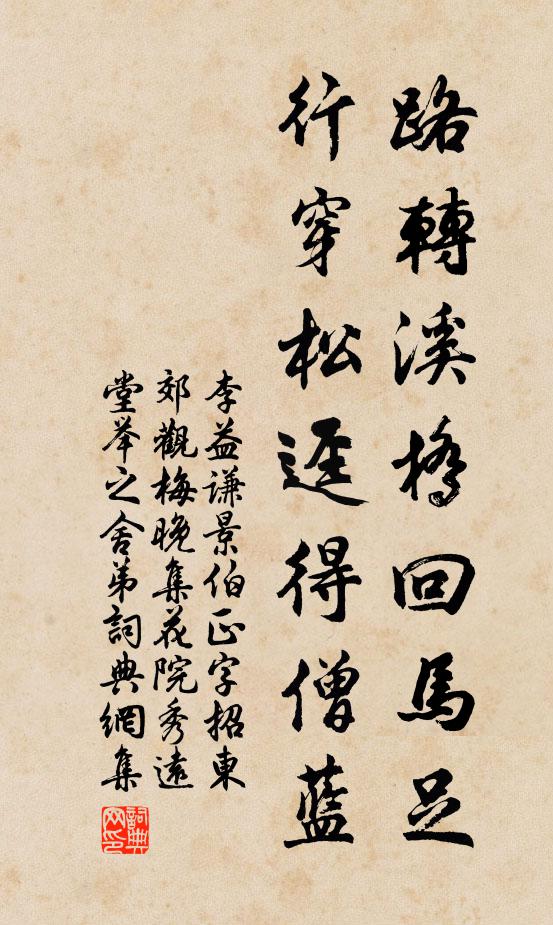 路轉溪橋回馬足
行穿松逕得僧藍
李益謙景伯正字招東
郊觀梅晚集花院秀遠
堂举之舍弟詞典網集
詞典
网印